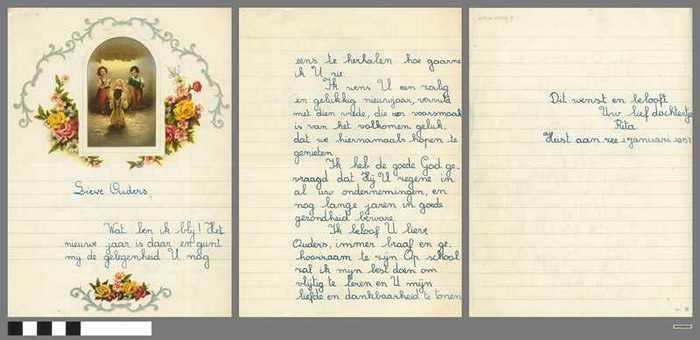 Lieve Ouders,
Wat ben ik blij! Het
nieuwe jaar is daar en gunt
mij de gelegenheid U nog
eens te herhalen hoe gaarne
ik U zie.
Ik wens U een zalig
en gelukkig nieuwjaar, vervuld
met dien vrede, die een voorsmaak
is van het volkomen geluk,
dat we hiernamaals hopen te
genieten.
Ik heb de goede God ge-
vraagd dat Hij U zegene in
al uw ondernemingen, en
nog lange jaren in goede
gezondheid beware.
Ik beloof U lieve
Ouders, immer braaf en ge-
hoorzaam te zijn. Op school
zal ik mijn best doen om
vlijtig te leren en U mijn
liefde en dankbaarheid te tonen.
Dit wenst en belooft
Uw lief dochtertje
Rita
Heist aan zee 1 januari